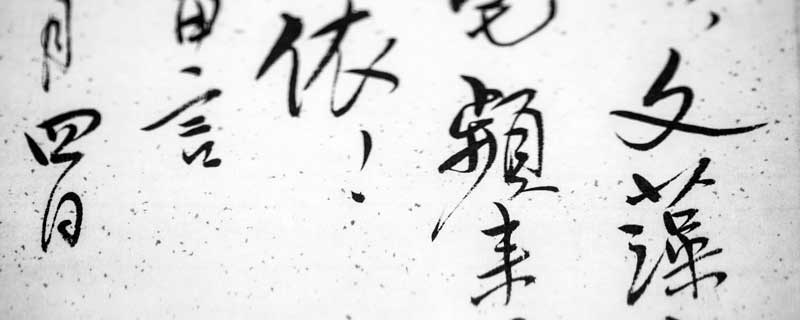 文藻
頻来
依
言
月四日